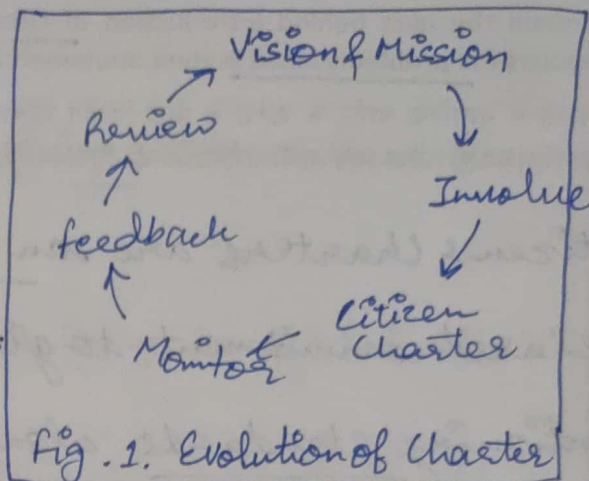 Vision & Mission
Involve
Citizen
Charter
Monitor
feedback
Review
Fig. 1. Evolution of Charter